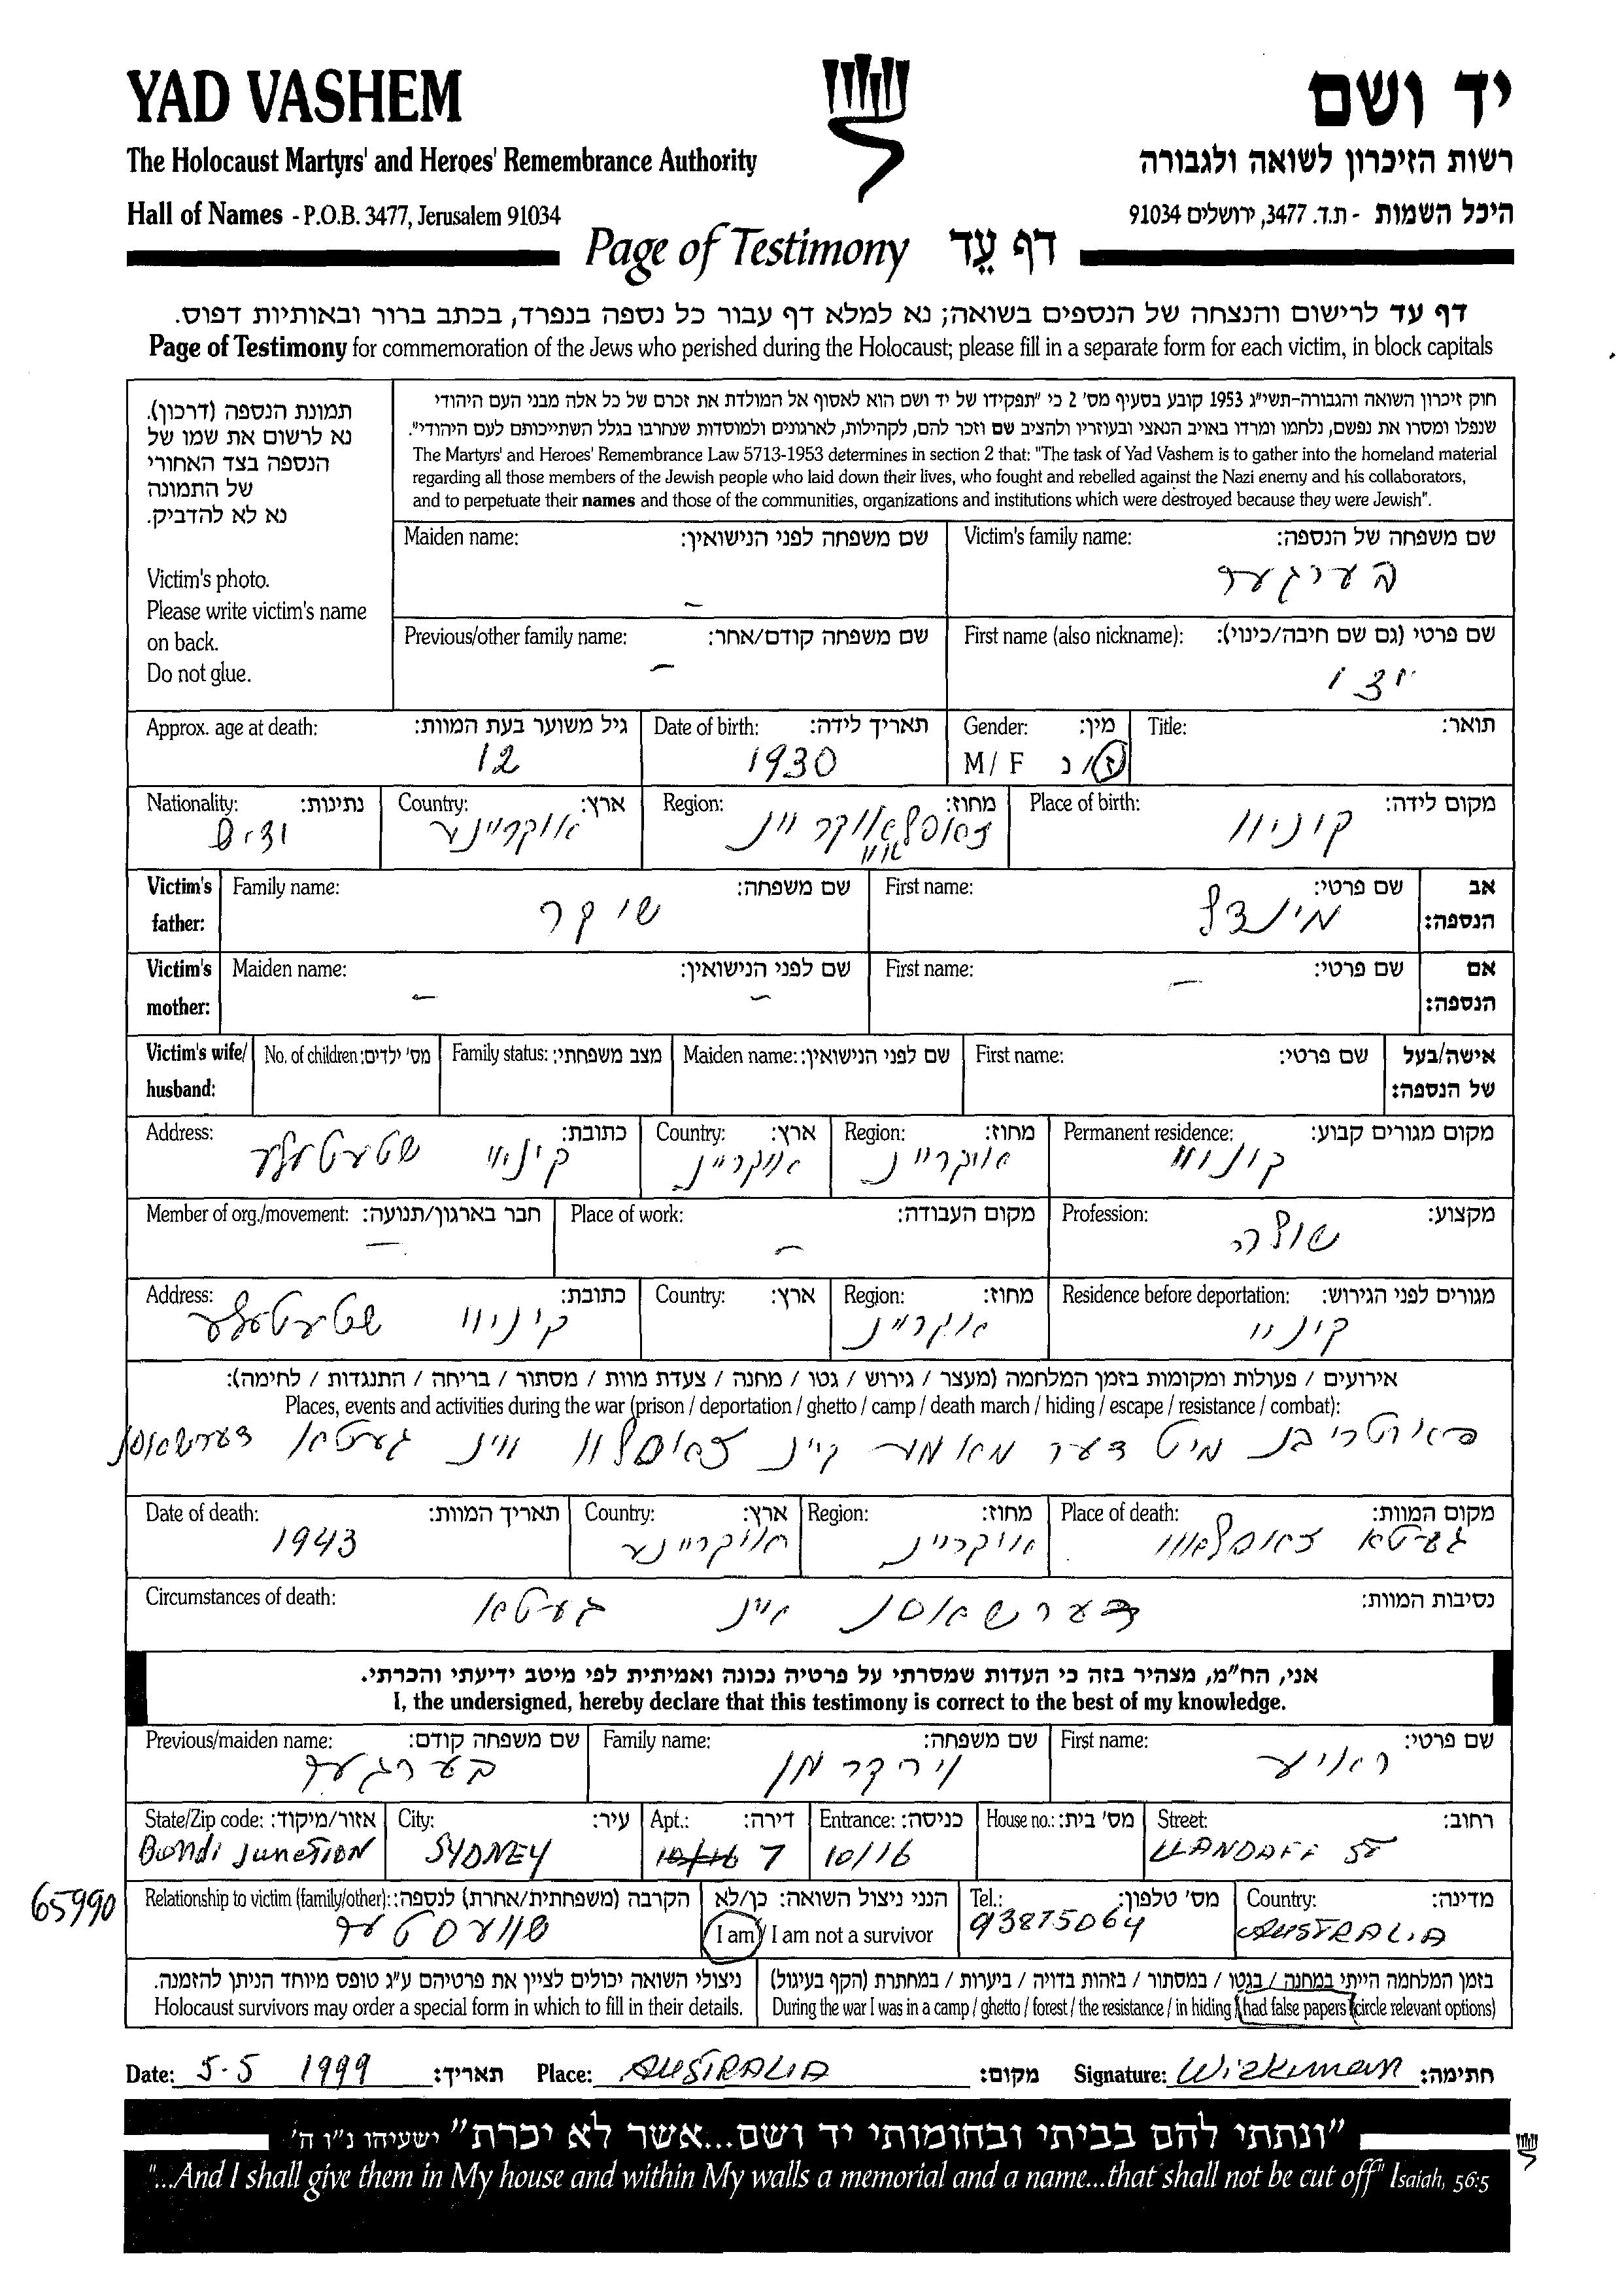 YAD VASHEM
יד ושם
The Holocaust Martyrs' and Heroes' Remembrance Authority
רשות הזיכרון לשואה ולגבורה
Hall of Names - P.O.B. 3477, Jerusalem 91034
היכל השמות - ת.ד. 3477, ירושלים 91034
Page of Testimony דף עֵד
דף עד לרישום והנצחה של הנספים בשואה; נא למלא דף עבור כל נספה בנפרד, בכתב ברור ובאותיות דפוס.
Page of Testimony for commemoration of the Jews who perished during the Holocaust; please fill in a separate form for each victim, in block capitals
תמונת הנספה (דרכון).
נא לרשום את שמו של
הנספה בצד האחורי
של התמונה
נא לא להדביק.
Victim's photo.
Please write victim's name
on back.
Do not glue.
חוק זיכרון השואה והגבורה-תשי"ג 1953 קובע בסעיף מס' 2 כי "תפקידו של יד ושם הוא לאסוף אל המולדת את זכרם של כל אלה מבני העם היהודי
שנפלו ומסרו את נפשם, נלחמו ומרדו באויב הנאצי ובעוזריו ולהציב שם וזכר להם, לקהילות, לארגונים ולמוסדות שנחרבו בגלל השתייכותם לעם היהודי".
The Martyrs' and Heroes' Remembrance Law 5713-1953 determines in section 2 that: "The task of Yad Vashem is to gather into the homeland material
regarding all those members of the Jewish people who laid down their lives, who fought and rebelled against the Nazi enemy and his collaborators,
and to perpetuate their names and those of the communities, organizations and institutions which were destroyed because they were Jewish".
Victim's family name: שם משפחה של הנספה:
Maiden name: שם משפחה לפני הנישואין:
–
First name (also nickname): שם פרטי (גם שם חיבה/כינוי):
Previous/other family name: שם משפחה קודם/אחר:
–
Title: תואר:
Gender: מין:
M / F ז / נ
Date of birth: תאריך לידה:
1930
Approx. age at death: גיל משוער בעת המוות:
12
Place of birth: מקום לידה:
קוניוו
Region: מחוז:
Country: ארץ:
אוקריינע
Nationality: נתינות:
Victim's father: אב הנספה:
First name: שם פרטי:
מינדל
Family name: שם משפחה:
Victim's mother: אם הנספה:
First name: שם פרטי:
–
Maiden name: שם לפני הנישואין:
– –
Victim's wife/ husband: אישה/בעל של הנספה:
First name: שם פרטי:
Maiden name: שם לפני הנישואין:
Family status: מצב משפחתי:
No. of children: מס' ילדים:
Permanent residence: מקום מגורים קבוע:
קוניוו
Region: מחוז:
אוקריינ
Country: ארץ:
אוקריינ
Address: כתובת:
קיניוו שטעטעלע
Profession: מקצוע:
Place of work: מקום העבודה:
–
Member of org./movement: חבר בארגון/תנועה:
–
Residence before deportation: מגורים לפני הגירוש:
קיניוו
Region: מחוז:
אוקריינ
Country: ארץ:
Address: כתובת:
קיניוו שטעטעלע
אירועים / פעולות ומקומות בזמן המלחמה (מעצר / גירוש / גטו / מחנה / צעדת מוות / מסתור / בריחה / התנגדות / לחימה):
Places, events and activities during the war (prison / deportation / ghetto / camp / death march / hiding / escape / resistance / combat):
פארטריבן מיט דער מאמע קיין זאסלוו אין געטא דערשאסן
Place of death: מקום המוות:
געטא זאסלאוו
Region: מחוז:
אוקריינ
Country: ארץ:
אוקריינע
Date of death: תאריך המוות:
1943
Circumstances of death: נסיבות המוות:
דערשאסן אין געטא
אני, הח"מ, מצהיר בזה כי העדות שמסרתי על פרטיה נכונה ואמיתית לפי מיטב ידיעתי והכרתי.
I, the undersigned, hereby declare that this testimony is correct to the best of my knowledge.
First name: שם פרטי:
ראיע
Family name: שם משפחה:
Previous/maiden name: שם משפחה קודם:
Street: רחוב:
LLANDAFF ST
House no.: מס' בית:
Entrance: כניסה:
10/16
Apt.: דירה:
7
City: עיר:
SYDNEY
State/Zip code: אזור/מיקוד:
Bondi JUNCTION
65990
Country: מדינה:
AUSTRALIA
Tel.: מס' טלפון:
93875064
הנני ניצול השואה: כן/לא
I am / I am not a survivor
Relationship to victim (family/other): הקרבה (משפחתית/אחרת) לנספה:
שוועסטער
בזמן המלחמה הייתי במחנה / בגטו / במסתור / בזהות בדויה / ביערות / במחתרת (הקף בעיגול)
During the war I was in a camp / ghetto / forest / the resistance / in hiding / had false papers (circle relevant options)
ניצולי השואה יכולים לציין את פרטיהם ע"ג טופס מיוחד הניתן להזמנה.
Holocaust survivors may order a special form in which to fill in their details.
Date: 5-5 1999 תאריך: Place: AUSTRALIA מקום: Signature: Wirkurman חתימה:
"ונתתי להם בביתי ובחומותי יד ושם...אשר לא יכרת" ישעיהו נ"ו ה'
"...And I shall give them in My house and within My walls a memorial and a name...that shall not be cut off" Isaiah, 56:5